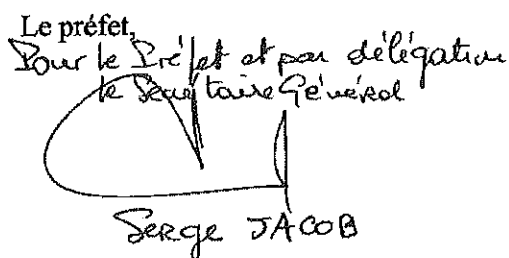 Le préfet,
Pour le Préfet et par délégation
le Secrétaire Général
Serge JACOB